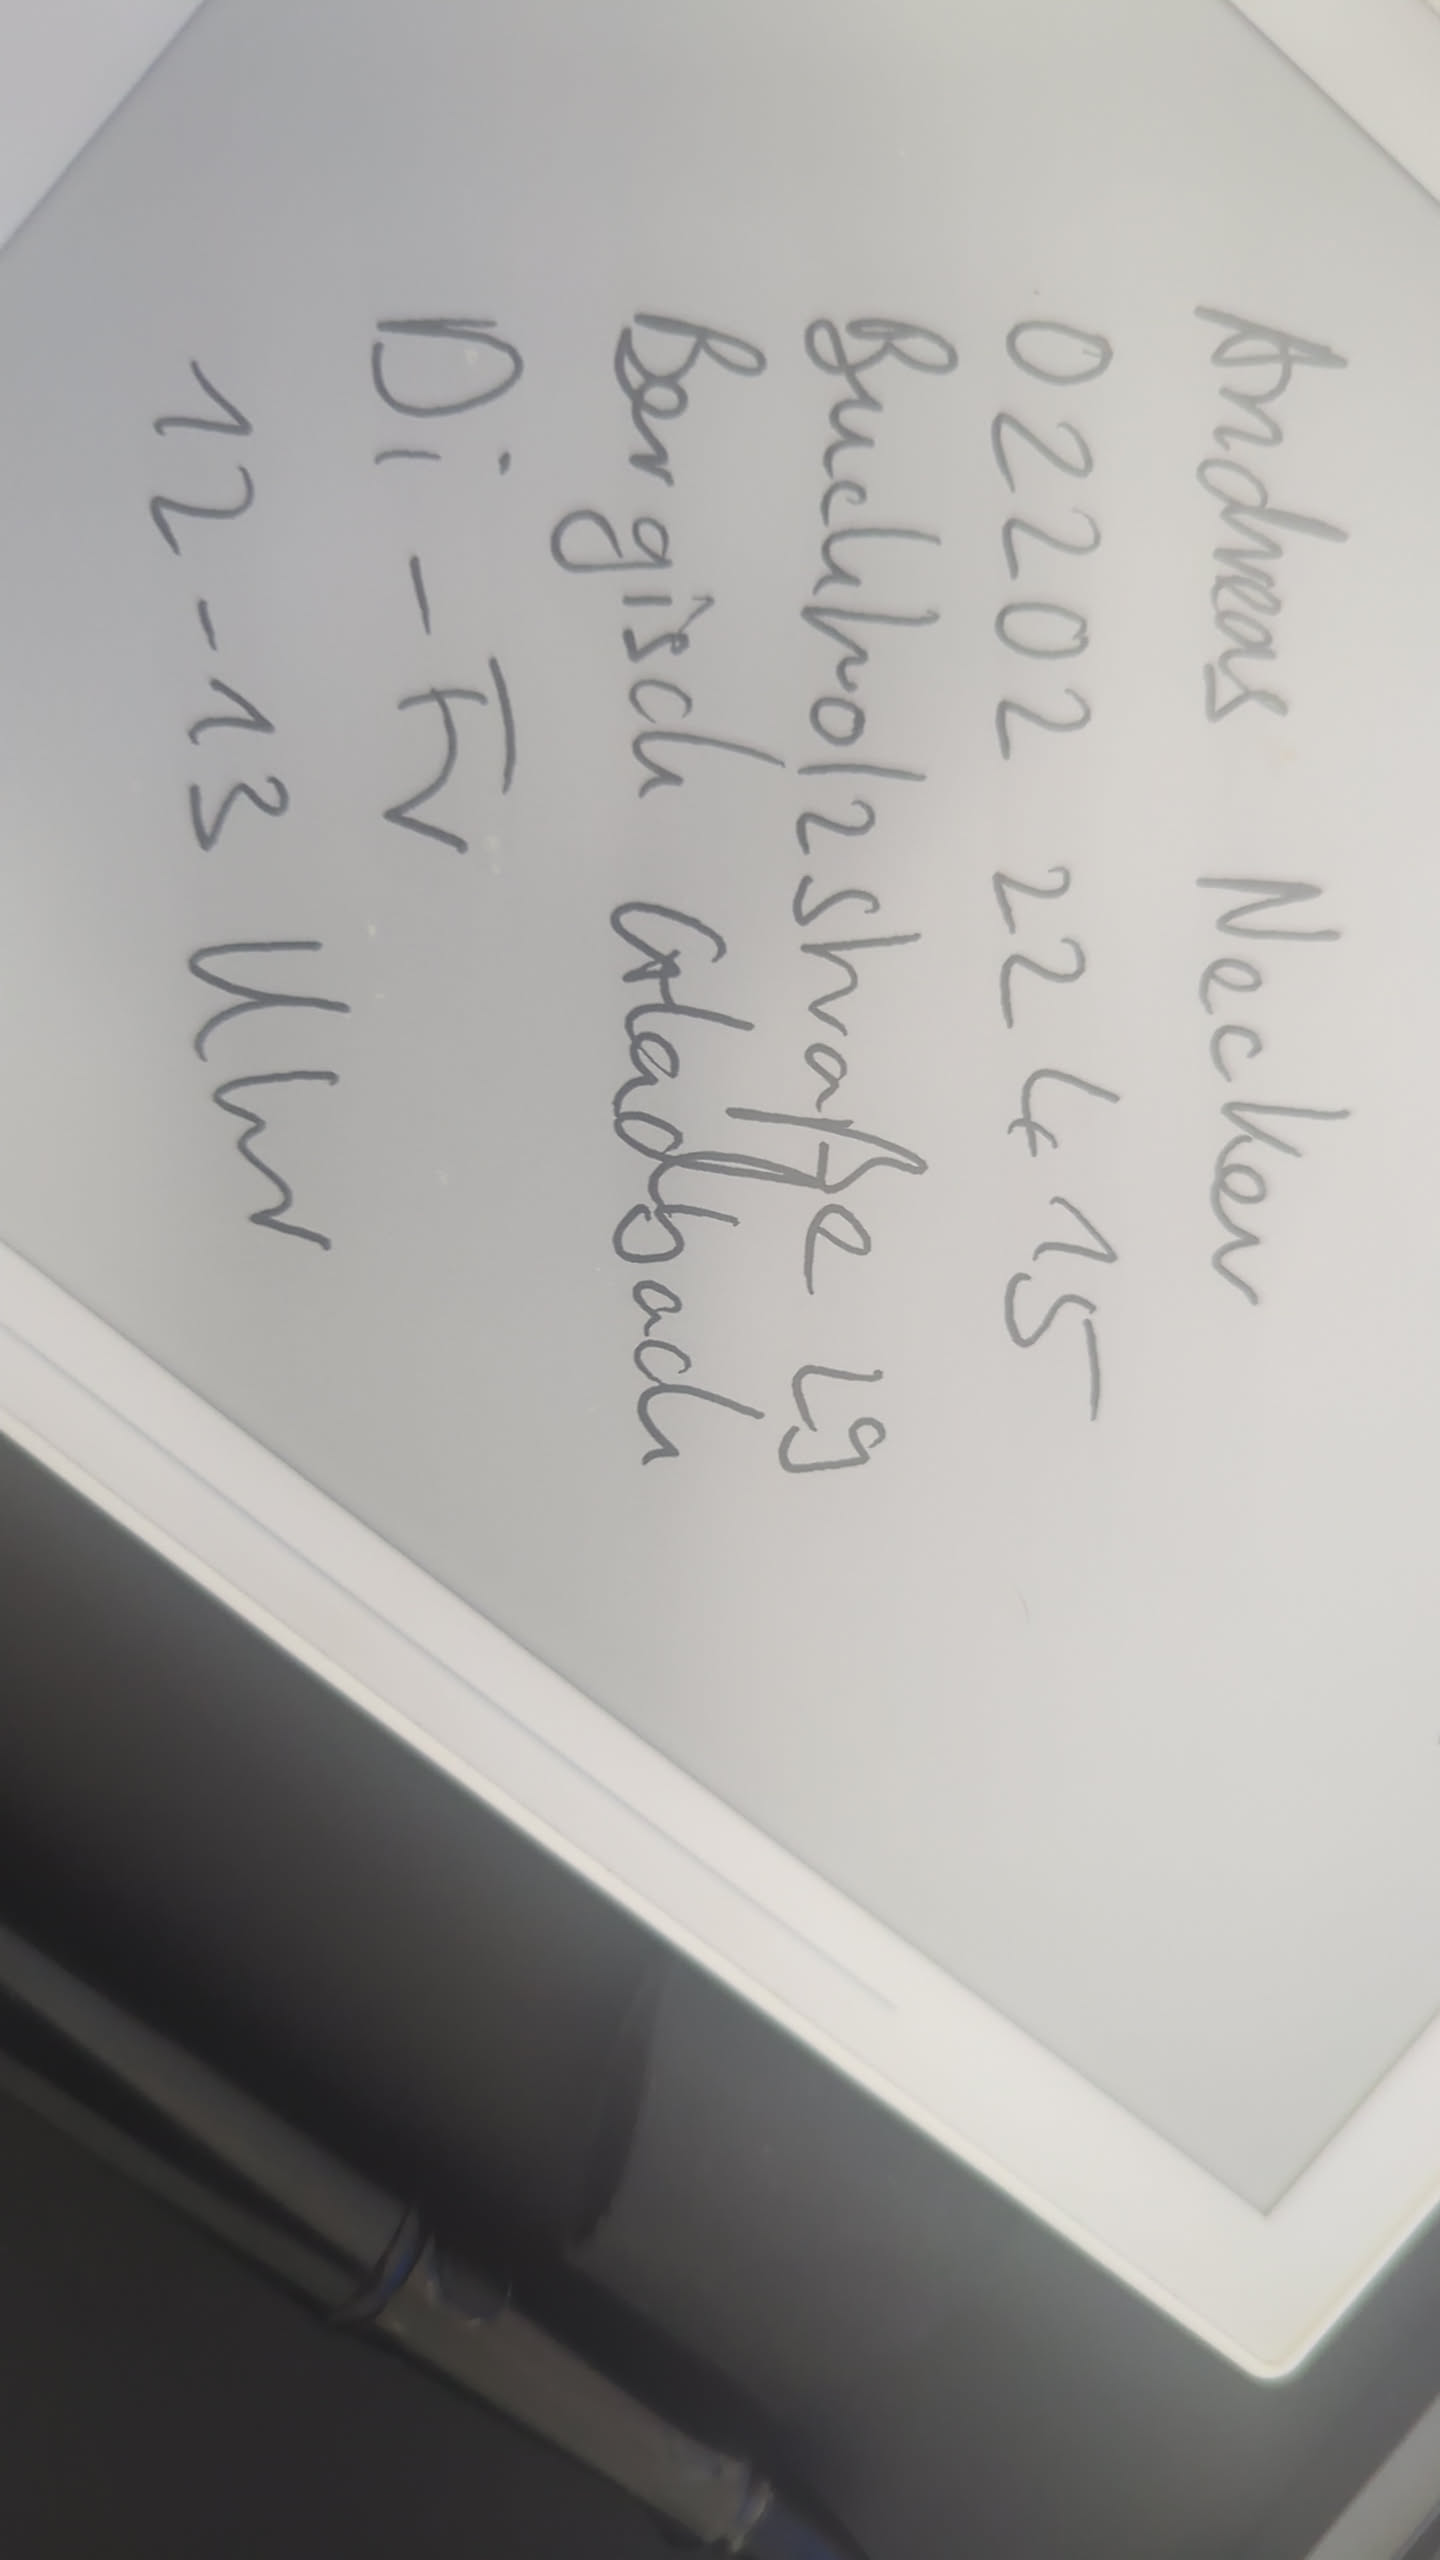 Andreas Necker
02202 22 4 15
Buchholzstraße 19
Bergisch Gladbach
Di - Fr
12 - 13 Uhr